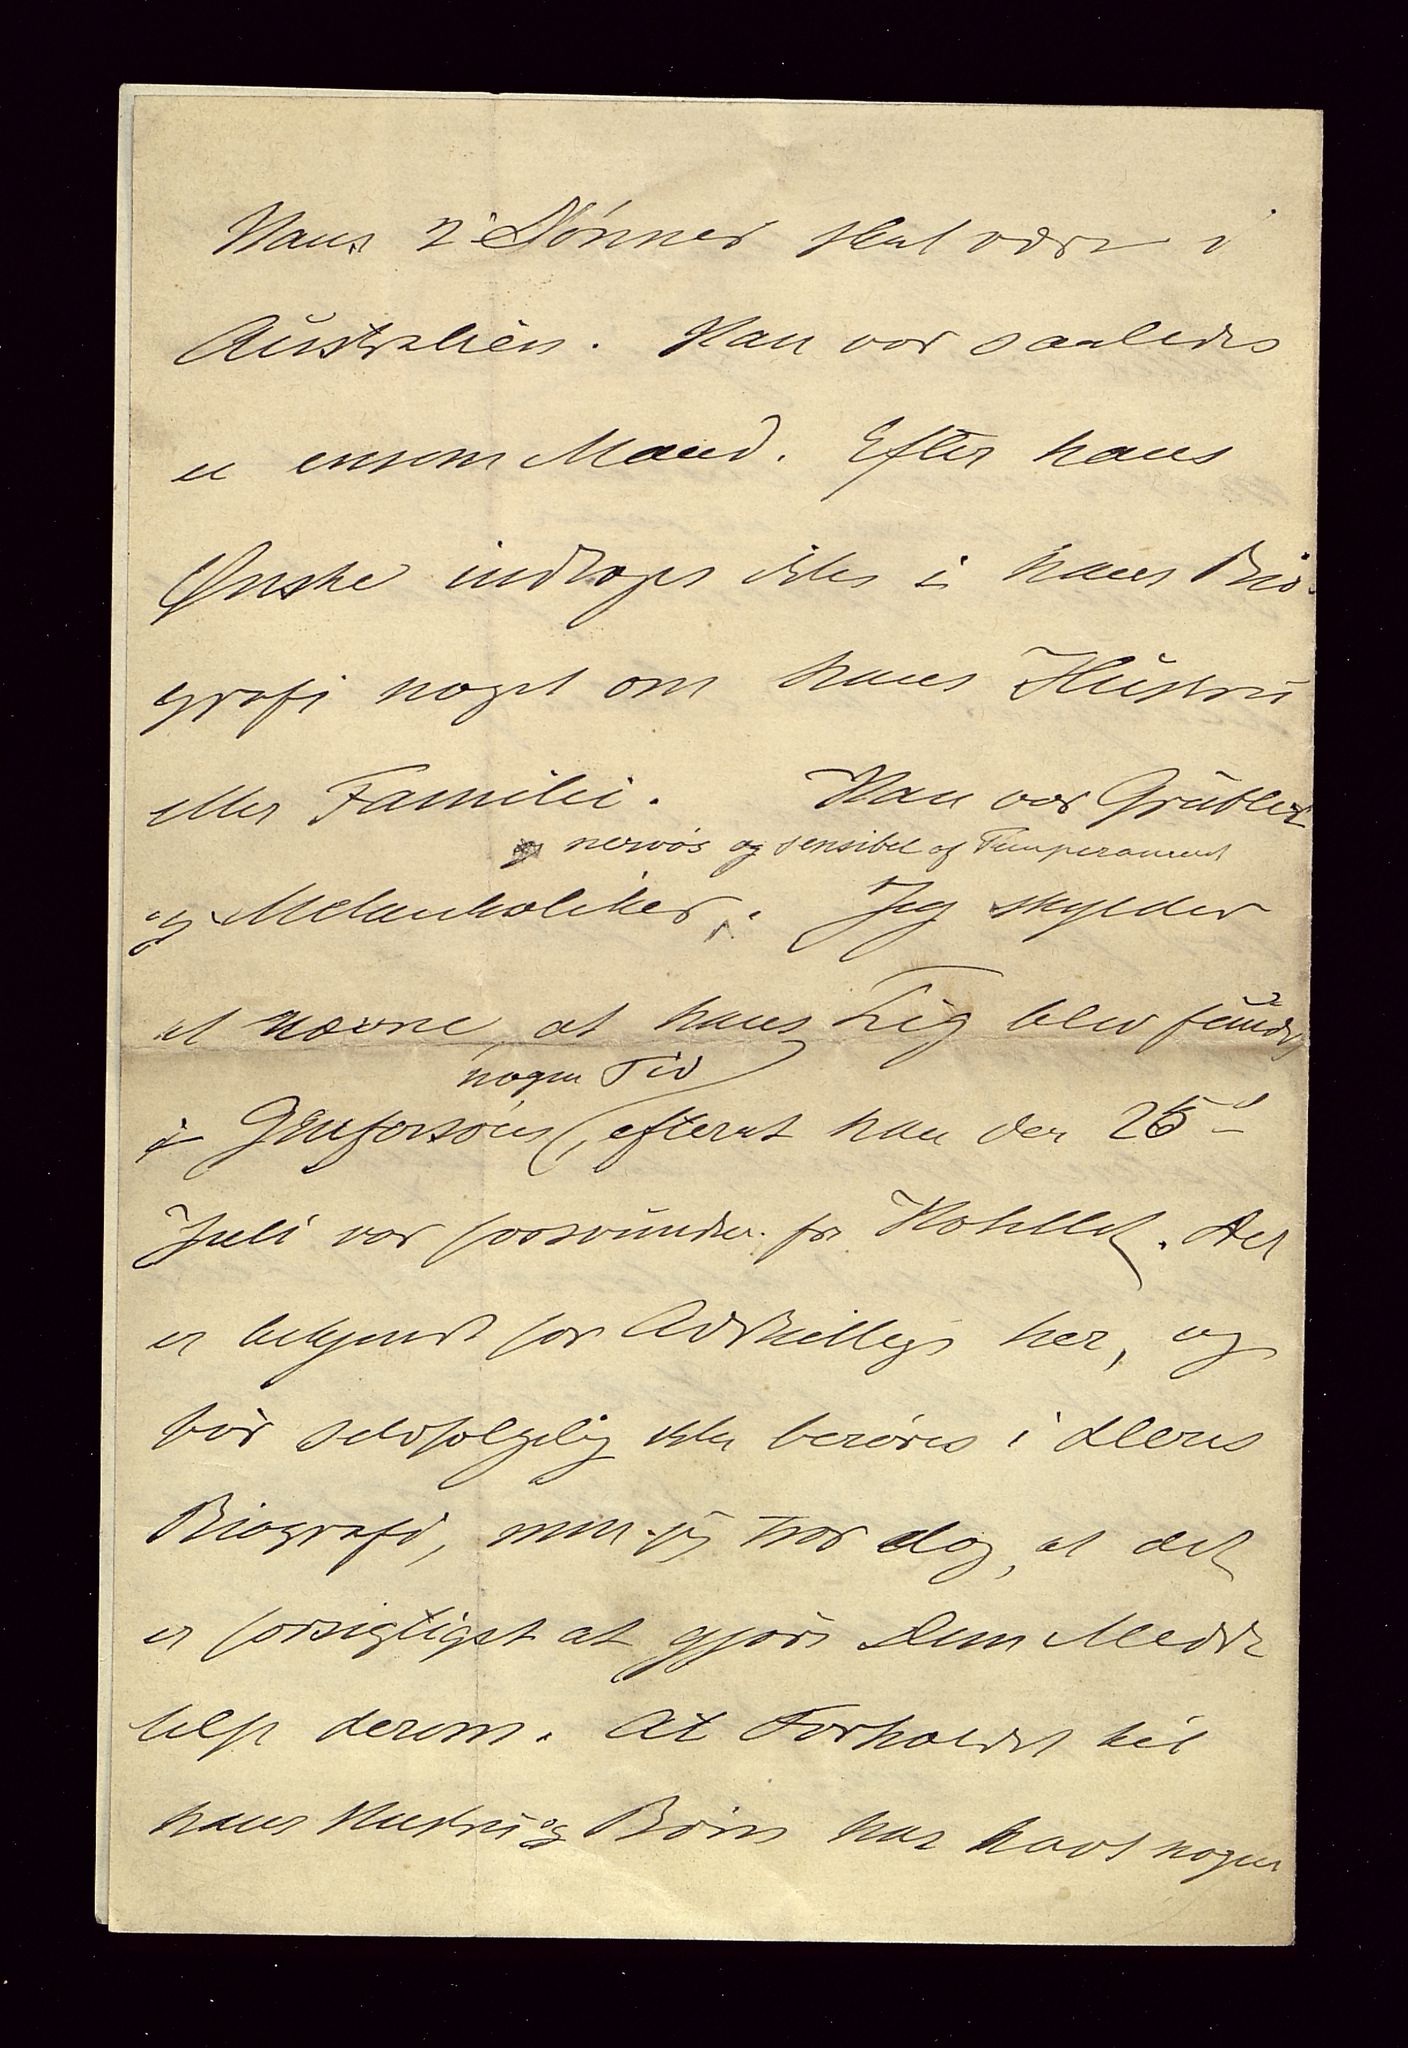 Hans 2 Sønner skal være i
Australien. Han var saaledes
en ensom Mand. Efter hans
Ønske indtoges ikke i hans Bio-
grafi noget om hans Hustru
eller Familie. Han var Grubler
og nervøs og sensibel af Temperament
og Melankoliker. Jeg skylder
at nævne, at hans Lig blev fundet
nogen Tid
i Genfersøen, efterat han den 25d
Juli var forsvunden fra Hotellet. Det
er bekjendt for Adskillige her, og
bør selvfølgelig ikke berøres i Deres
Biografi, men jeg tror dog, at det
er forsigtigst at gjøre Dem Medde
lelse derom. At Forholdet til
hans Hustru og Børn har havt nogen